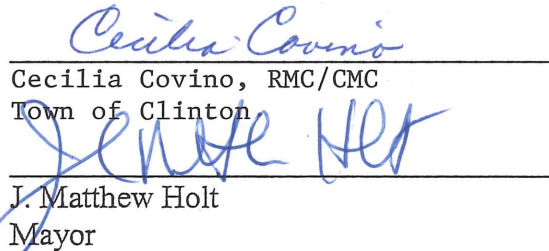 Cecilia Covino
Cecilia Covino, RMC/CMC
Town of Clinton
J. Matthew Holt
J. Matthew Holt
Mayor